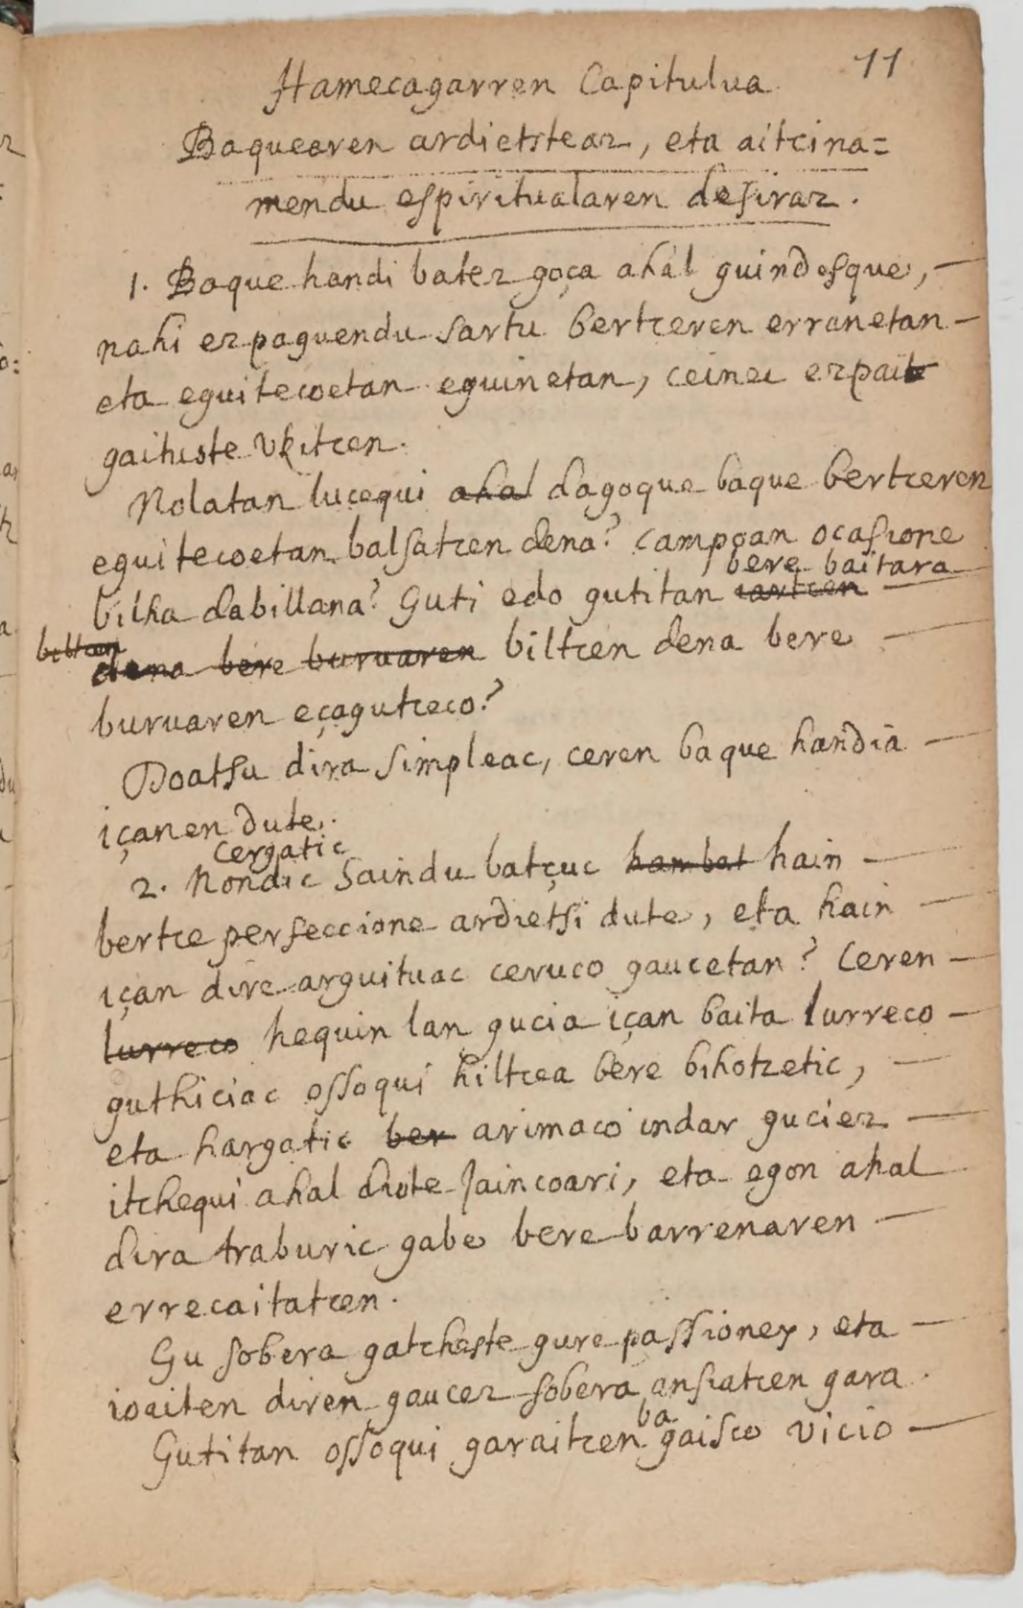 11
Hamecagarren Capitulua
Baquearen ardietsteaz, eta aitcina=
mendu espiritualaren desiraz.
1. Baque handi batez goça ahal guindesque, —
nahi ezpaguendu sartu bertceren erranetan —
eta eguitecoetan eguinetan, ceinec ezpait
gaituste vkitcen.
Nolatan lucequi ahal dagoque baque bertceren
eguitecoetan balsatcen dena? campoan ocasione
bere baitara
bilha dabillana? Guti edo gutitan sartcen —
biltcen
dena bere buruaren biltcen dena bere —
buruaren eçagutceco?
Doatsu dira simpleac, ceren baque handia —
içanen dute.
cergatic
2. Nondic saindu batçuc hambat hain —
bertce perfeccione ardietsi dute, eta hain —
içan dire arguituac ceruco gaucetan? Ceren —
lurreco hequin lan gucia içan baita lurreco —
guthiciac ossoqui hiltcea bere bihotzetic, —
eta hargatic ber arimaco indar guciez —
itchequi ahal diote Jaincoari, eta egon ahal
dira traburic gabe bere barrenaren —
errecaitatcen.
Gu sobera gatcheste gure passioney, eta —
ioaiten diren gaucez sobera ansiatcen gara.
ba
Gutitan ossoqui garaitcen gaisco vicio —